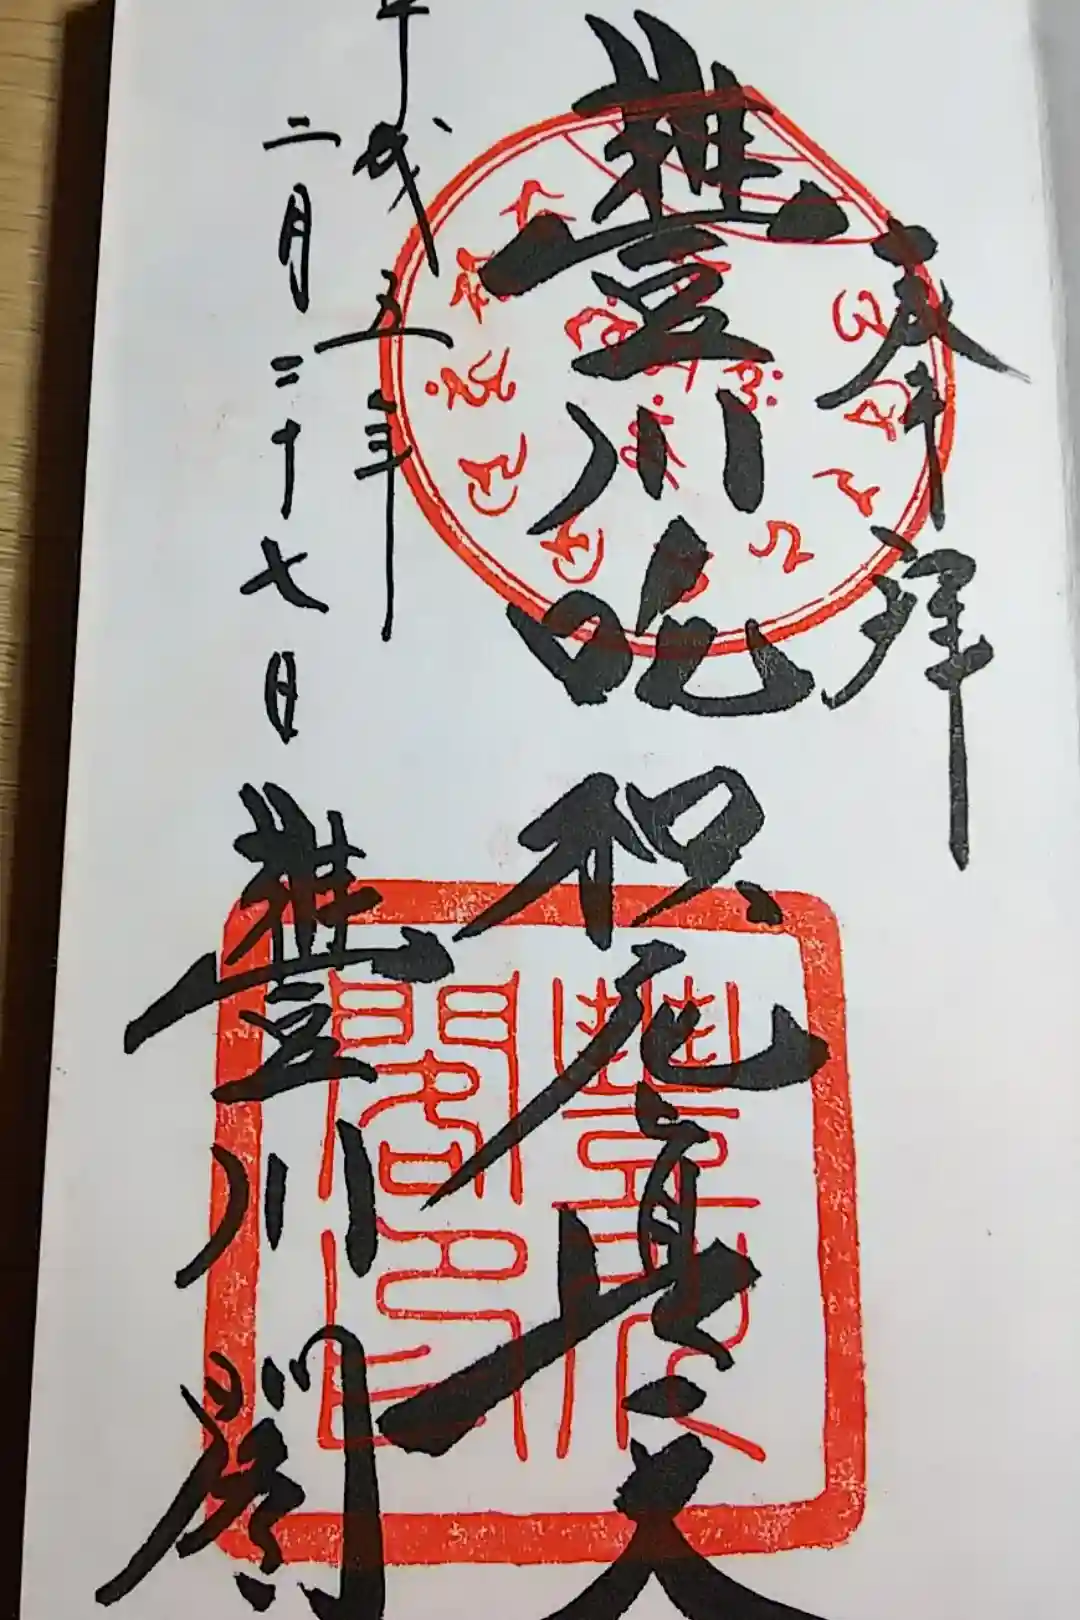 奉拝
豊川吒枳尼真天
平成五年
二月二十七日
豊川閣
豊川閣印